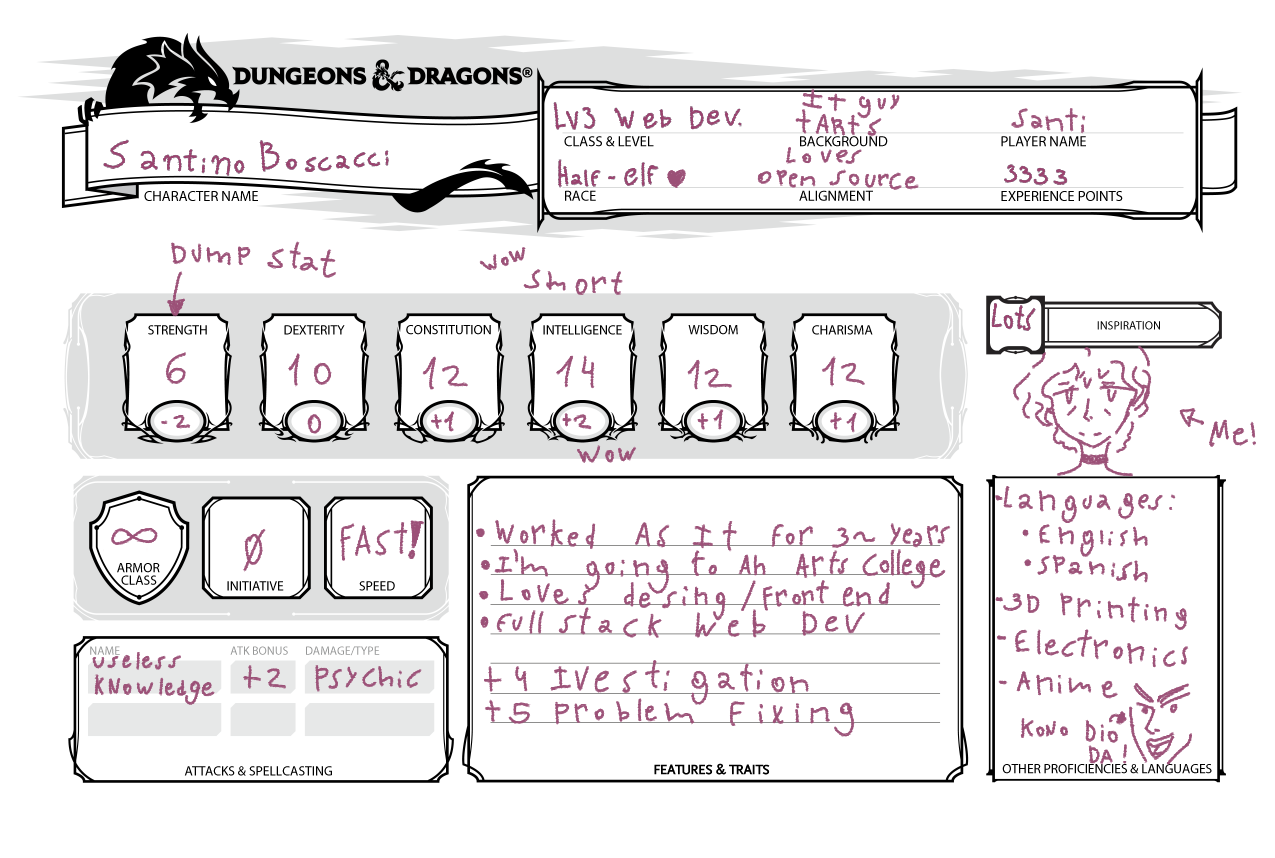 DUNGEONS & DRAGONS®
Santino Boscacci
CHARACTER NAME
Lv3 Web Dev.
CLASS & LEVEL
It guy
+ARts
BACKGROUND
Santi
PLAYER NAME
Half-elf ♥
RACE
Loves
open source
ALIGNMENT
3333
EXPERIENCE POINTS
Dump stat
wow
Smort
STRENGTH
6
-2
DEXTERITY
10
0
CONSTITUTION
12
+1
INTELLIGENCE
14
+2
WISDOM
12
+1
CHARISMA
12
+1
wow
Lots
INSPIRATION
Me!
∞
ARMOR
CLASS
Ø
INITIATIVE
FAST!
SPEED
NAME
ATK BONUS
DAMAGE/TYPE
useless
KNowledge
+2
PSYchic
ATTACKS & SPELLCASTING
• Worked As It for 3~ years
• I'm going to An Arts College
• Loves desing/Front end
• Full stack Web Dev
+4 Ivestigation
+5 Problem Fixing
FEATURES & TRAITS
-Languages:
• English
• Spanish
-3D Printing
- Electronics
- Anime
KoNo Dio
DA!
OTHER PROFICIENCIES & LANGUAGES